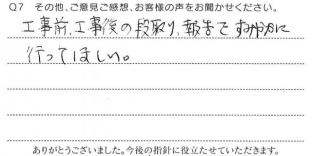 Q7 その他、ご意見ご感想、お客様の声をお聞かせください。
工事前、工事後の段取り、報告をすみやかに
行ってほしい。
ありがとうございました。今後の指針に役立たせていただきます。